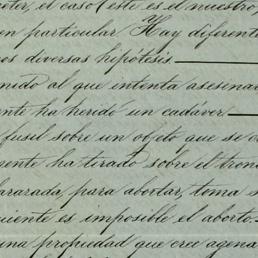 eter, el caso (este es el nuestro,
en particular Hay diferent
os diversas hipótesis
nido al que intenta asesina
ente ha herido un cadáver
fusil sobre un objeto que se c
ente ha tirado sobre el tron
barazada, para abortar, toma s
uiente es imposible el aborto
una propiedad que cree agena